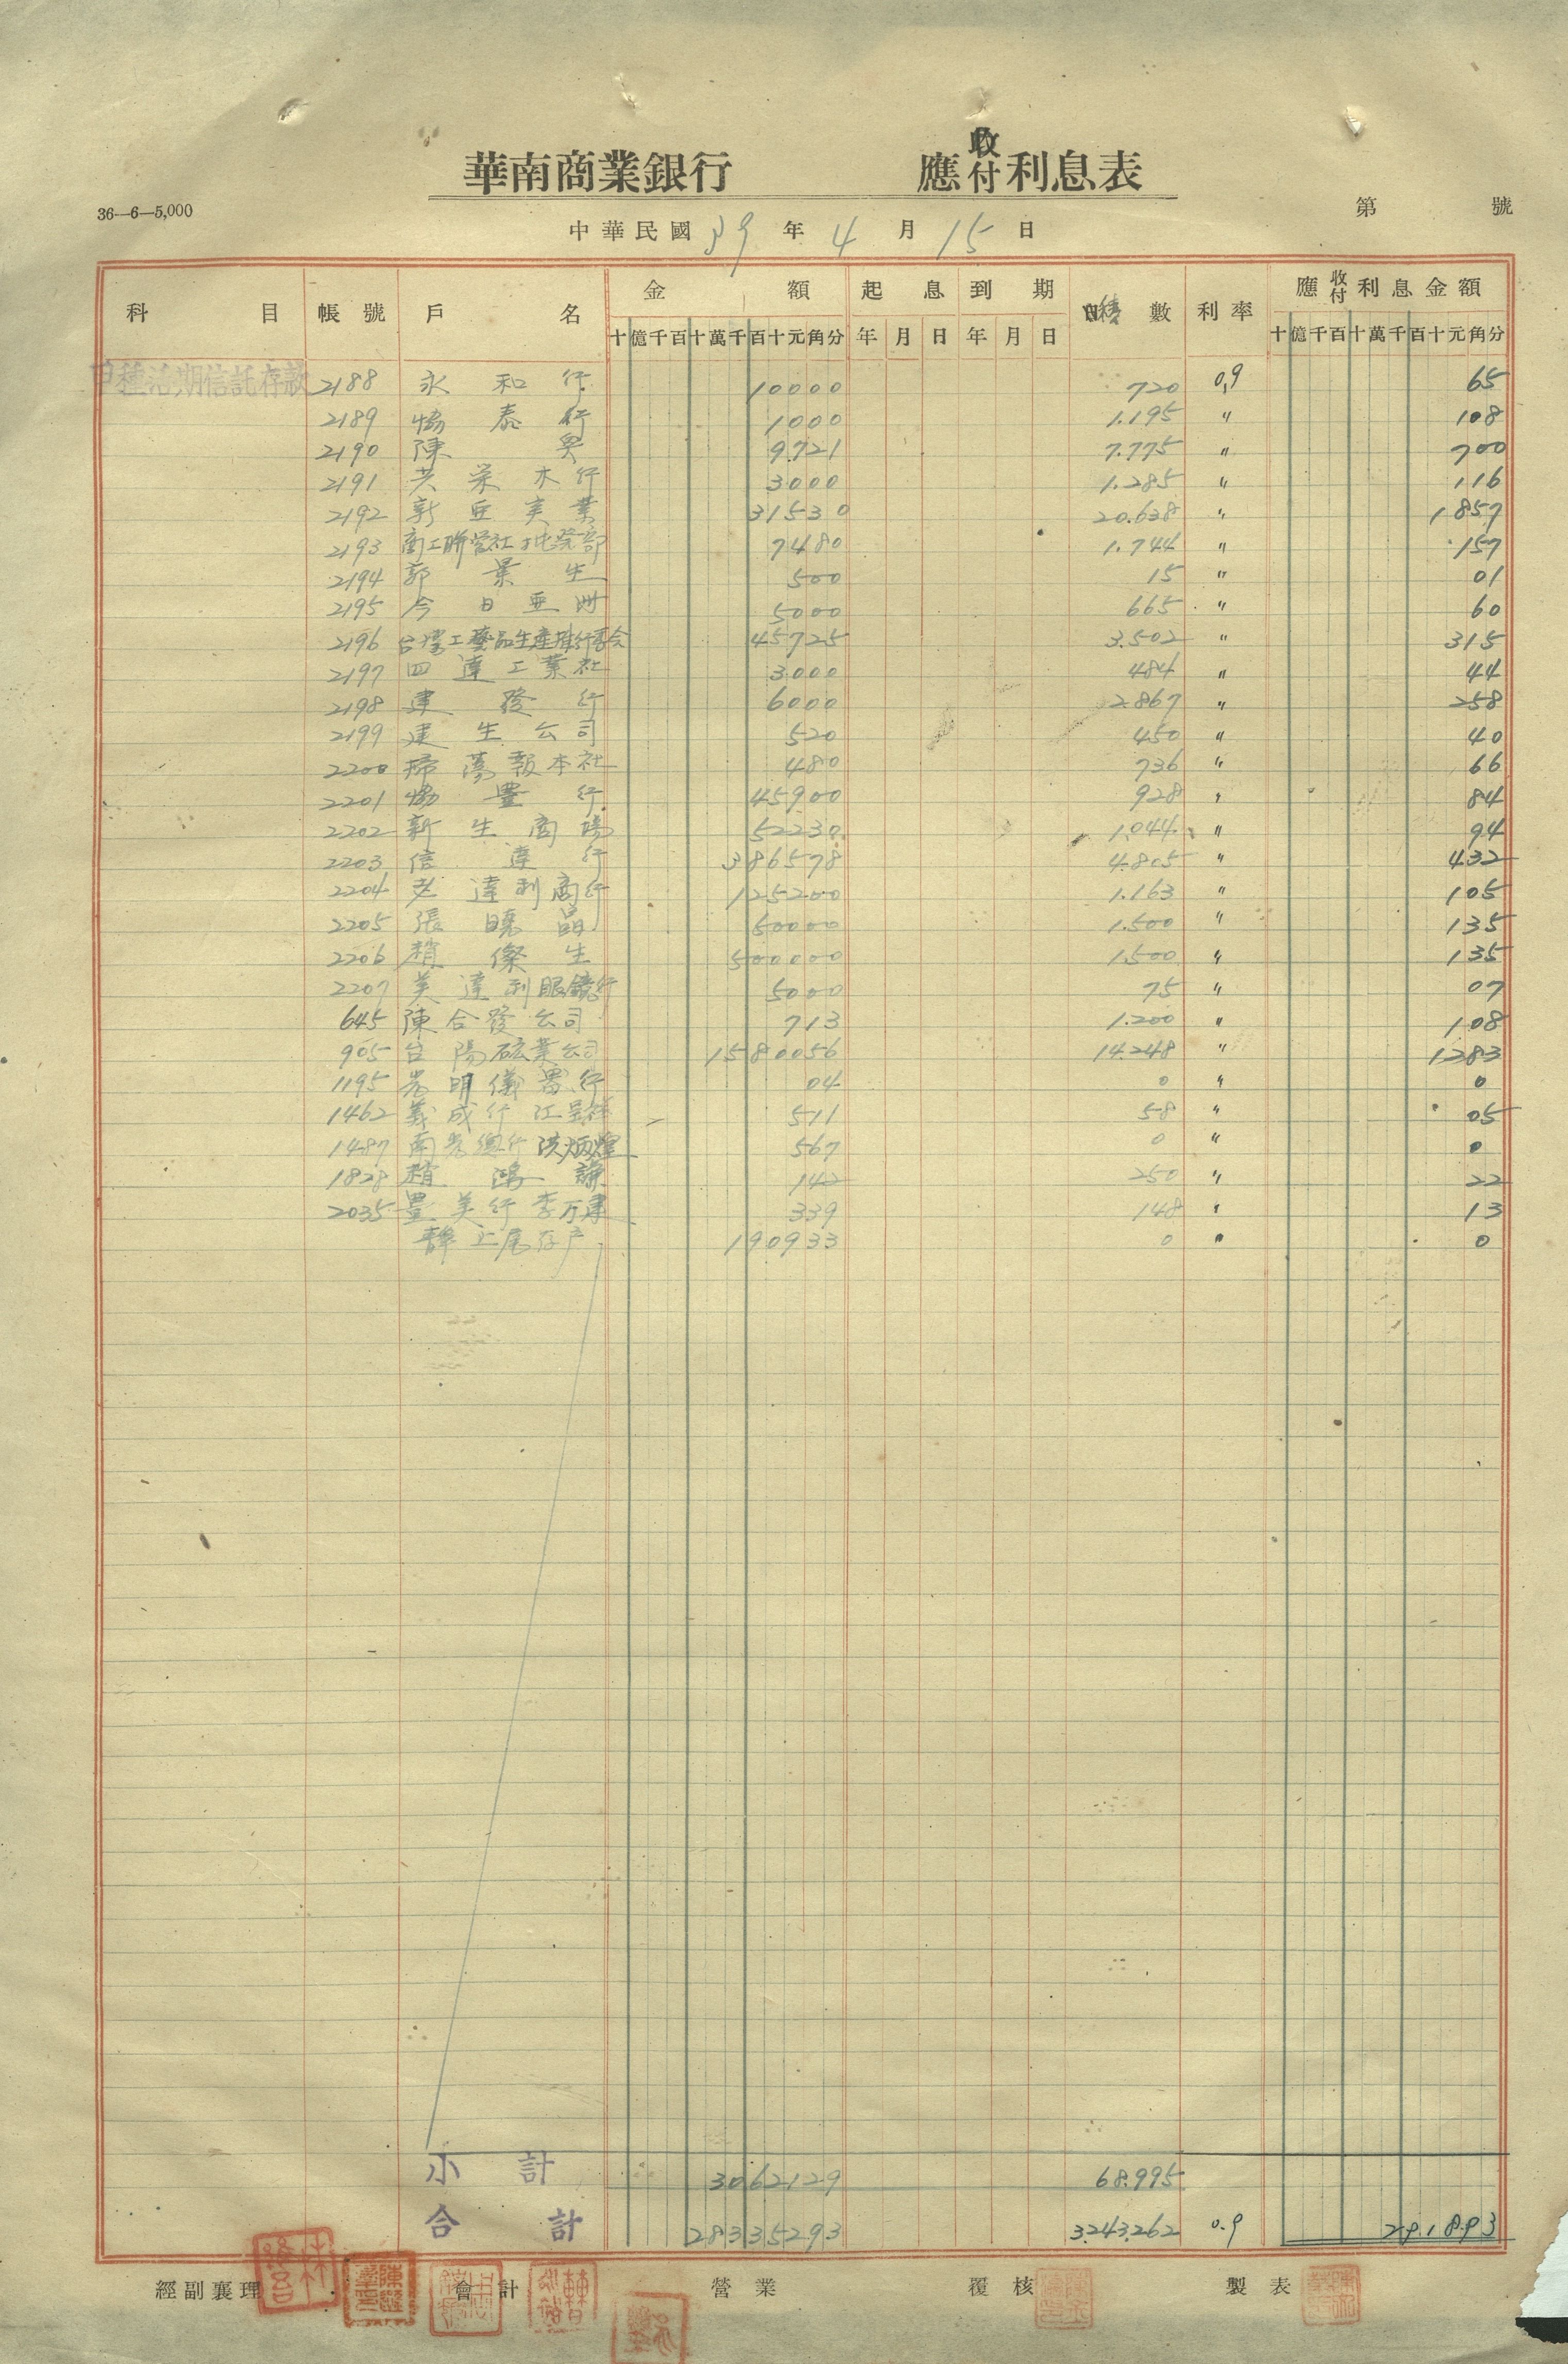 華南商業銀行 應收付利息表
36—6—5,000
第 號
中華民國39年4月15日
科目 帳號 戶名 金額 起息 到期 積數 利率 應收付利息金額
十億千百十萬千百十元角分 年月日 年月日 十億千百十萬千百十元角分
甲種活期信託存款 2188 永和行 10000 720 0.9 65
2189 協泰行 1000 1.195 〃 108
2190 陳 9.721 7.775 〃 700
2191 共榮木行 3000 1.285 〃 116
2192 新亞実業 31530 20.638 〃 1857
2193 商工聯營社批発部 7480 1.744 〃 157
2194 郭景生 500 15 〃 01
2195 今日亜洲 5000 665 〃 60
2196 台灣工藝品生産推行委会 45725 3.502 〃 315
2197 四達工業社 3000 484 〃 44
2198 建發行 6000 2.867 〃 258
2199 建生公司 520 450 〃 40
2200 掃蕩報本社 480 736 〃 66
2201 協豊行 45900 928 〃 84
2202 新生商場 52230 1.044 〃 94
2203 信達行 386578 4.805 〃 432
2204 達利商行 125200 1.163 〃 105
2205 張曉晶 50000 1.500 〃 135
2206 趙傑生 500000 1.500 〃 135
2207 美達利眼鏡行 5000 75 〃 07
645 陳合發公司 713 1.200 〃 108
905 台陽砿業公司 1580056 14.248 〃 1283
1195 光明儀器行 04 0 〃 0
1462 義成行 江 511 58 〃 05
1487 南光總行 洪炳煌 567 0 〃 0
1828 趙鴻謙 142 250 〃 22
2035 豊美行 李万車 339 148 〃 13
靜止尾存户 190933 0 〃 0
小計 3062129 68.995
合計 28335293 3.243.262 0.9 29.18.93
經副襄理 會計 營業 覆核 製表